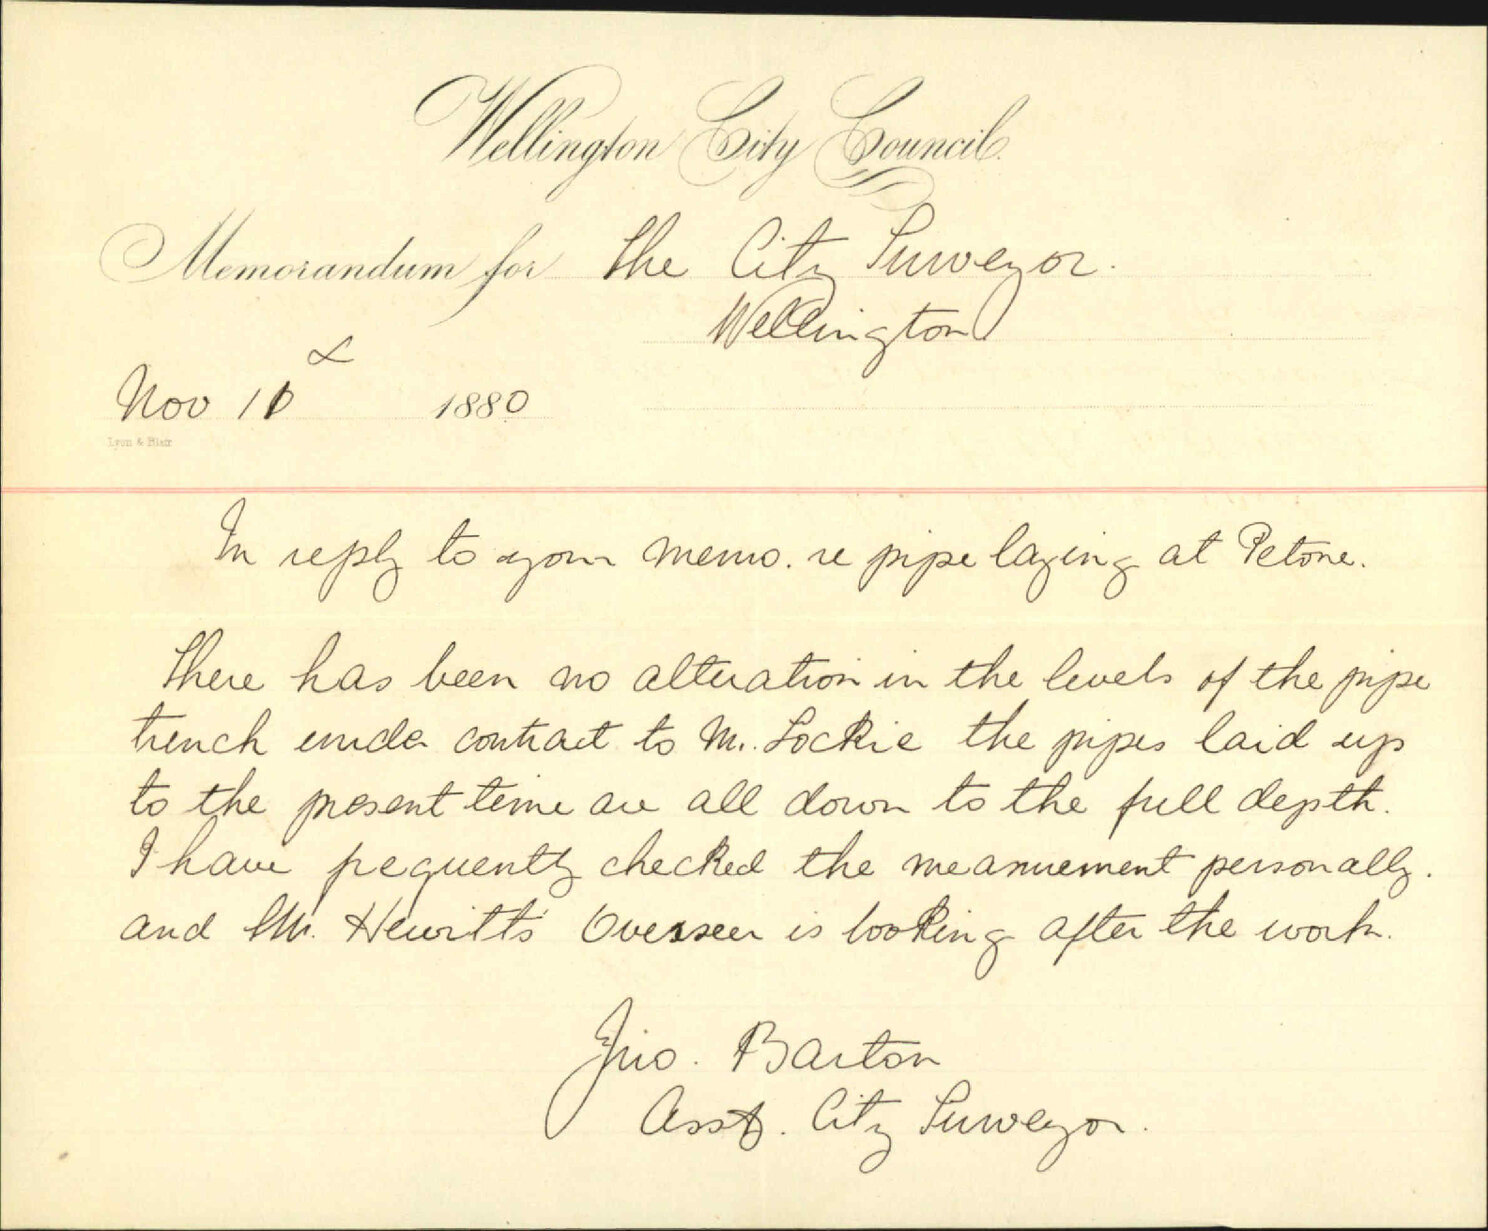 Wellington City Council.
Memorandum for The City Surveyor.
Wellington
Nov 1880
Lyon & Blair
In reply to your memo. re pipe laying at Petone.
There has been no alteration in the levels of the pipe
trench under contract to Mr. Lockie the pipes laid up
to the present time are all down to the full depth.
I have frequently checked the measurement personally.
and Mr. Hewitt's Overseer is looking after the work.
Jno. Barton
Asst. City Surveyor.